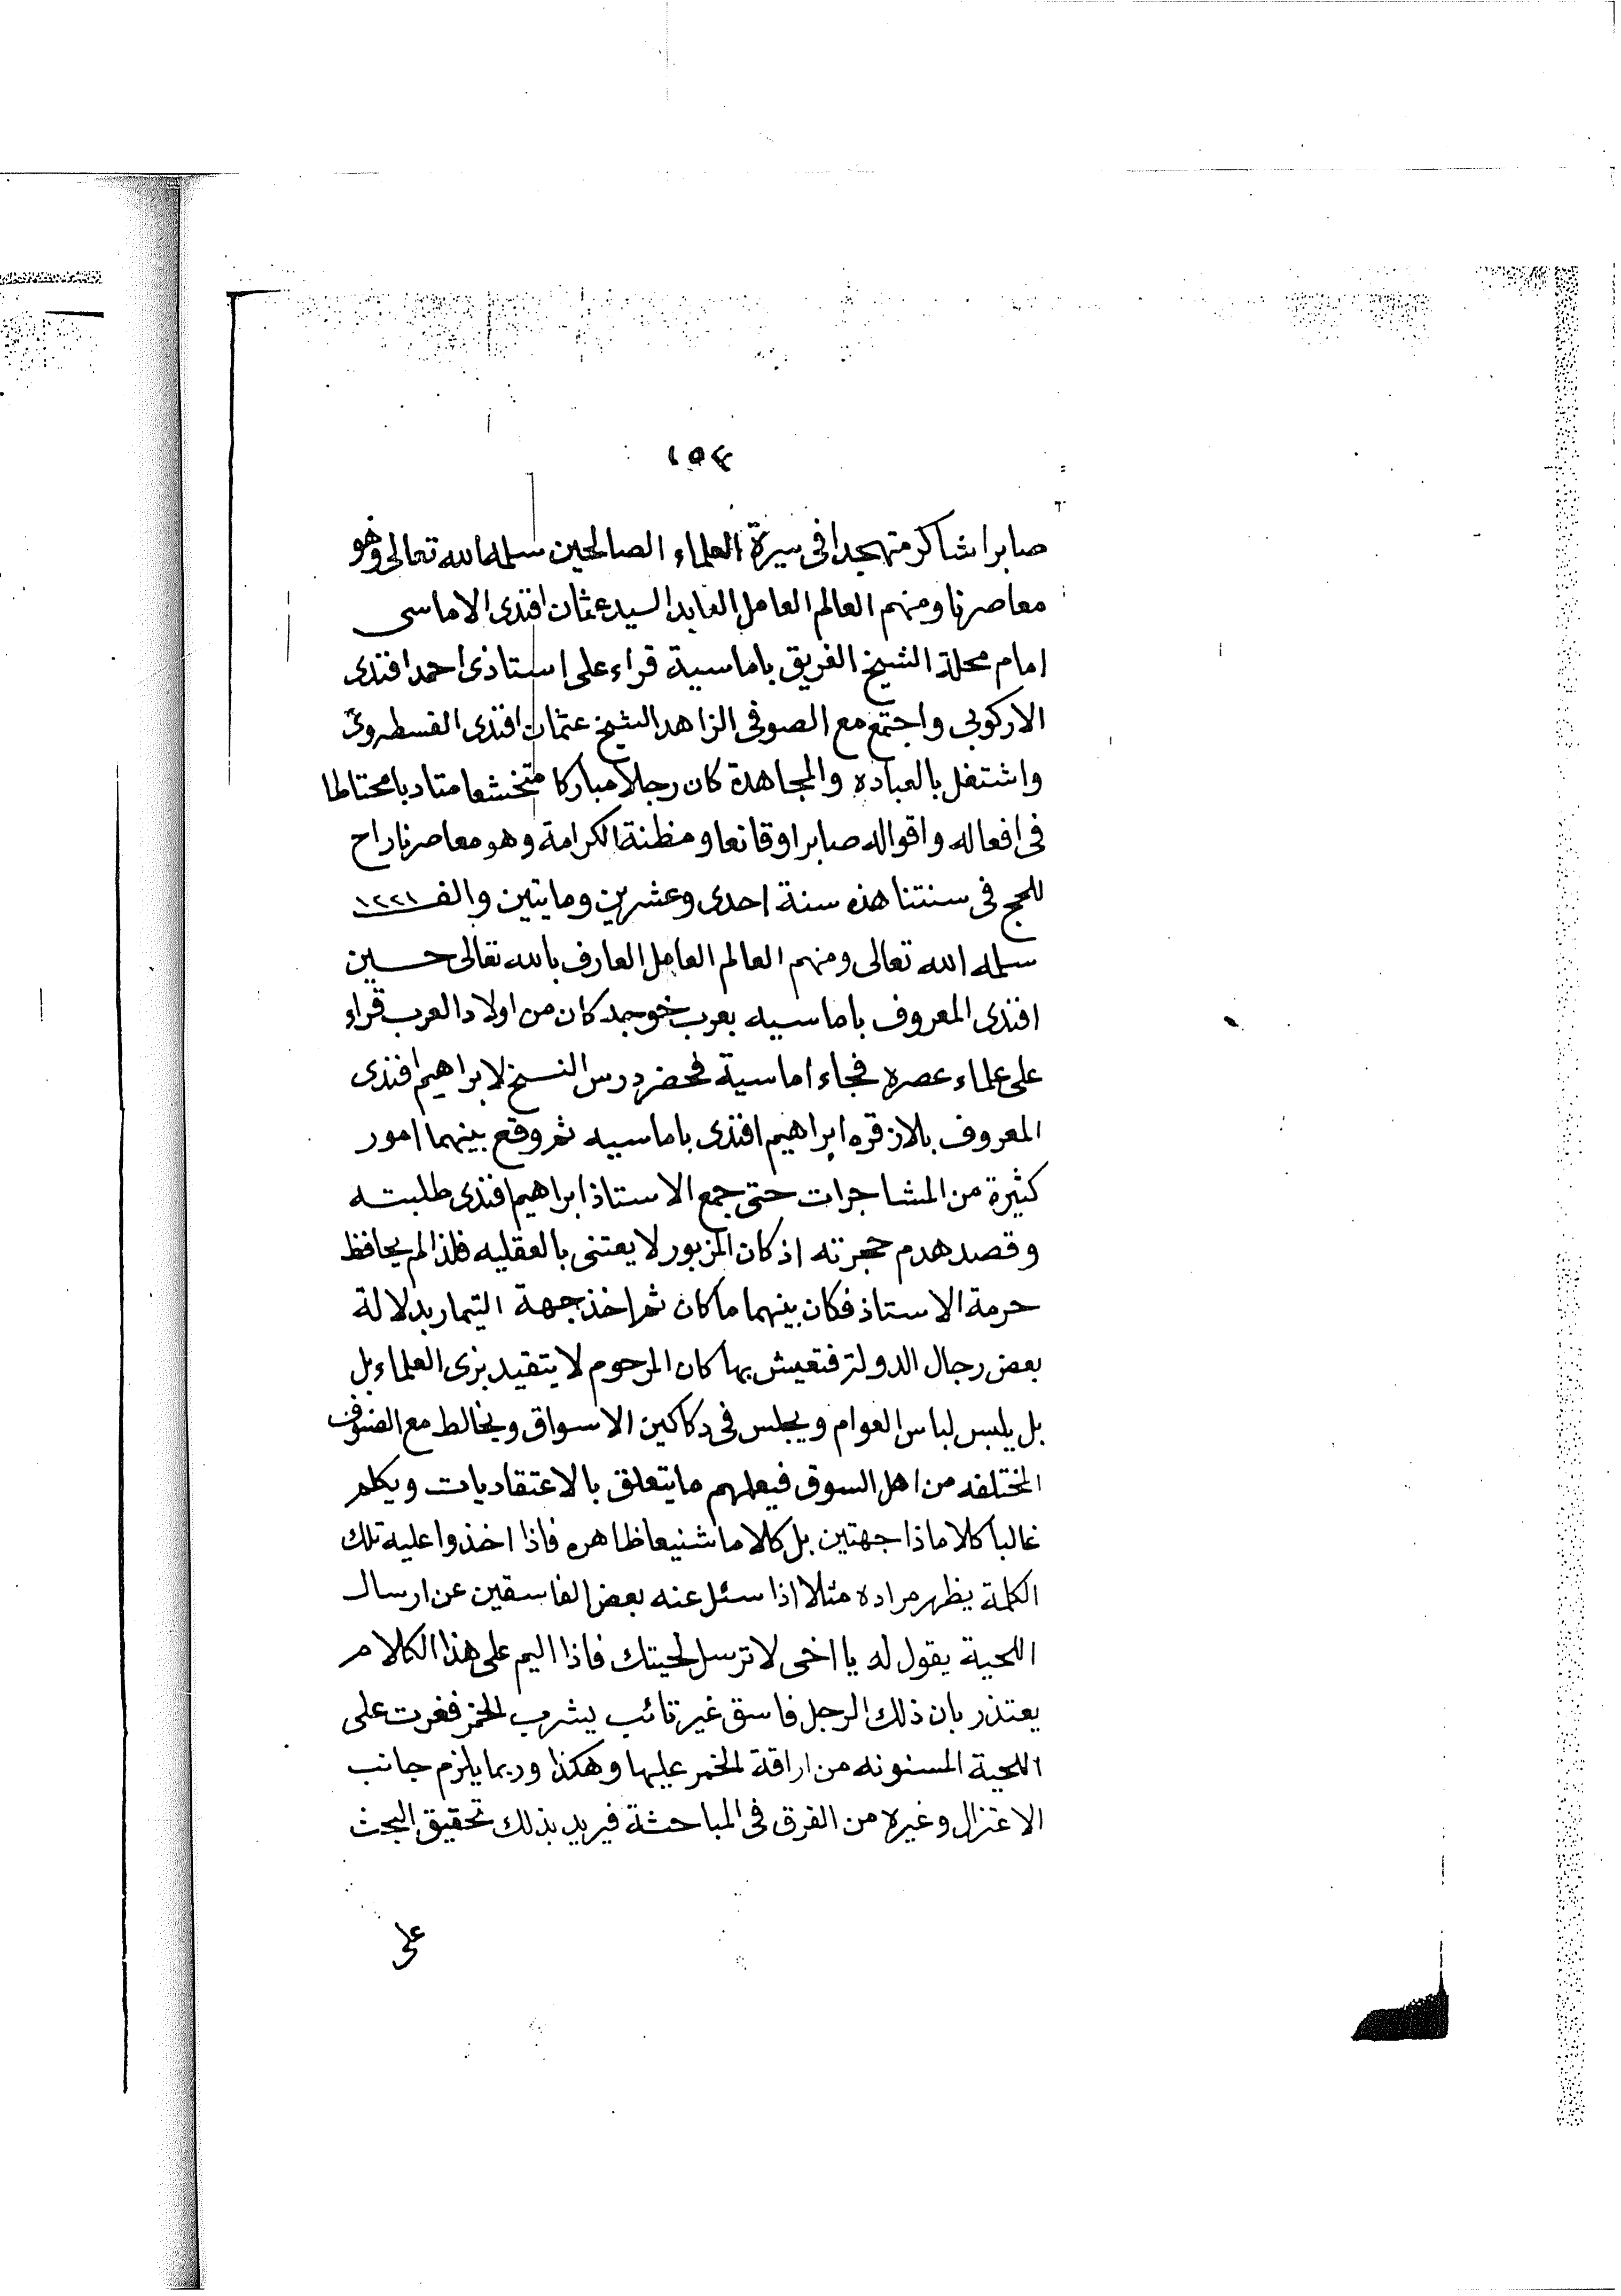 ١٥٤
صابرا شاكر متهجدا فى سيرة العلماء الصالحين سلمه الله تعالى وهو
معاصرنا ومنهم العالم العامل العابد السيد عثمان افندى الاماسى
امام محلة الشيخ الفريق باماسية قراء على استاذى احمد افندى
الاركوبى واجتمع مع الصوفى الزاهد الشيخ عثمان افندى
واشتغل بالعباده والمجاهدة كان رجلا مباركا متخشعا متادبا محتاطا
فى افعاله واقواله صابرا وقانعا ومظنة الكرامة وهو معاصرنا راح
للحج فى سنتنا هذه سنة احدى وعشرين ومايتين والف ١٢٢١
سلمه الله تعالى ومنهم العالم العامل العارف بالله تعالى حسين
افندى المعروف باماسيه بعرب خوجه كان من اولاد العرب قراء
على علماء عصره فجاء اماسية فحضر درس النسخ لابراهيم افندى
المعروف بالاز قره ابراهيم افندى باماسيه ثم وقع بينهما امور
كثيرة من المشاجرات حتى جمع الاستاذ ابراهيم افندى طلبته
وقصد هدم حجرته اذ كان المزبور لا يعتنى بالعقليه فلذا لم يحافظ
حرمة الاستاذ فكان بينهما ما كان ثم اخذ جهة التيمار بدلالة
بعض رجال الدولة فتعيش بها كان المرحوم لا يتقيد بزى العلماء بل
بل يلبس لباس العوام ويجلس فى دكاكين الاسواق ويخالط مع الصنوف
المختلفه من اهل السوق فيعلمهم ما يتعلق بالاعتقاديات ويكلم
غالبا كلاما ذا جهتين بل كلاما شنيعا ظاهره فاذا اخذوا عليه تلك
الكلمة يظهر مراده مثلا اذا سئل عنه بعض الفاسقين عن ارسال
اللحية يقول له يا اخى لا ترسل لحيتك فاذا اليم على هذا الكلام
يعتذر بان ذلك الرجل فاسق غير تائب يشرب الخمر فغرت على
اللحية المسنونه من اراقة الخمر عليها وهكذا وربما يلزم جانب
الاعتزال وغيره من الفرق فى المباحثة فيريد بذلك تحقيق البحث
على